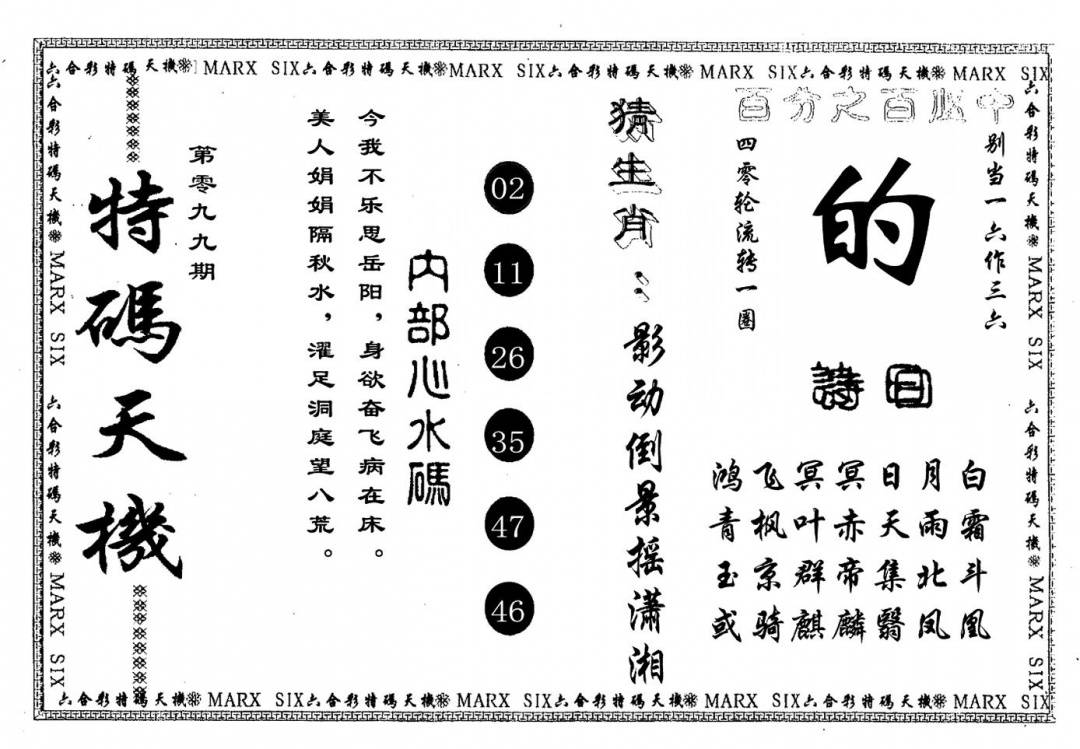 六合彩特碼天機※ MARX SIX六合彩特碼天機※MARX SIX六合彩特碼天機※ MARX SIX六合彩特碼天機※ MARX SIX
六合彩特碼天機※ MARX SIX 六合彩特碼天機※ MARX SIX
特碼天機
第零九九期
美人娟娟隔秋水，濯足洞庭望八荒。
今我不乐思岳阳，身欲奋飞病在床。
内部心水碼
02
11
26
35
47
46
猜生肖：影动倒景摇潇湘
百分之百必中
别当一六作三六
的
四零轮流转一圈
詩曰
鸿飞冥冥日月白
青枫叶赤天雨霜
玉京群帝集北斗
或骑麒麟翳凤凰
六合彩特碼天機※ MARX SIX 六合彩特碼天機※ MARX SIX
六合彩特碼天機※ MARX SIX六合彩特碼天機※ MARX SIX六合彩特碼天機※ MARX SIX六合彩特碼天機※ MARX SIX